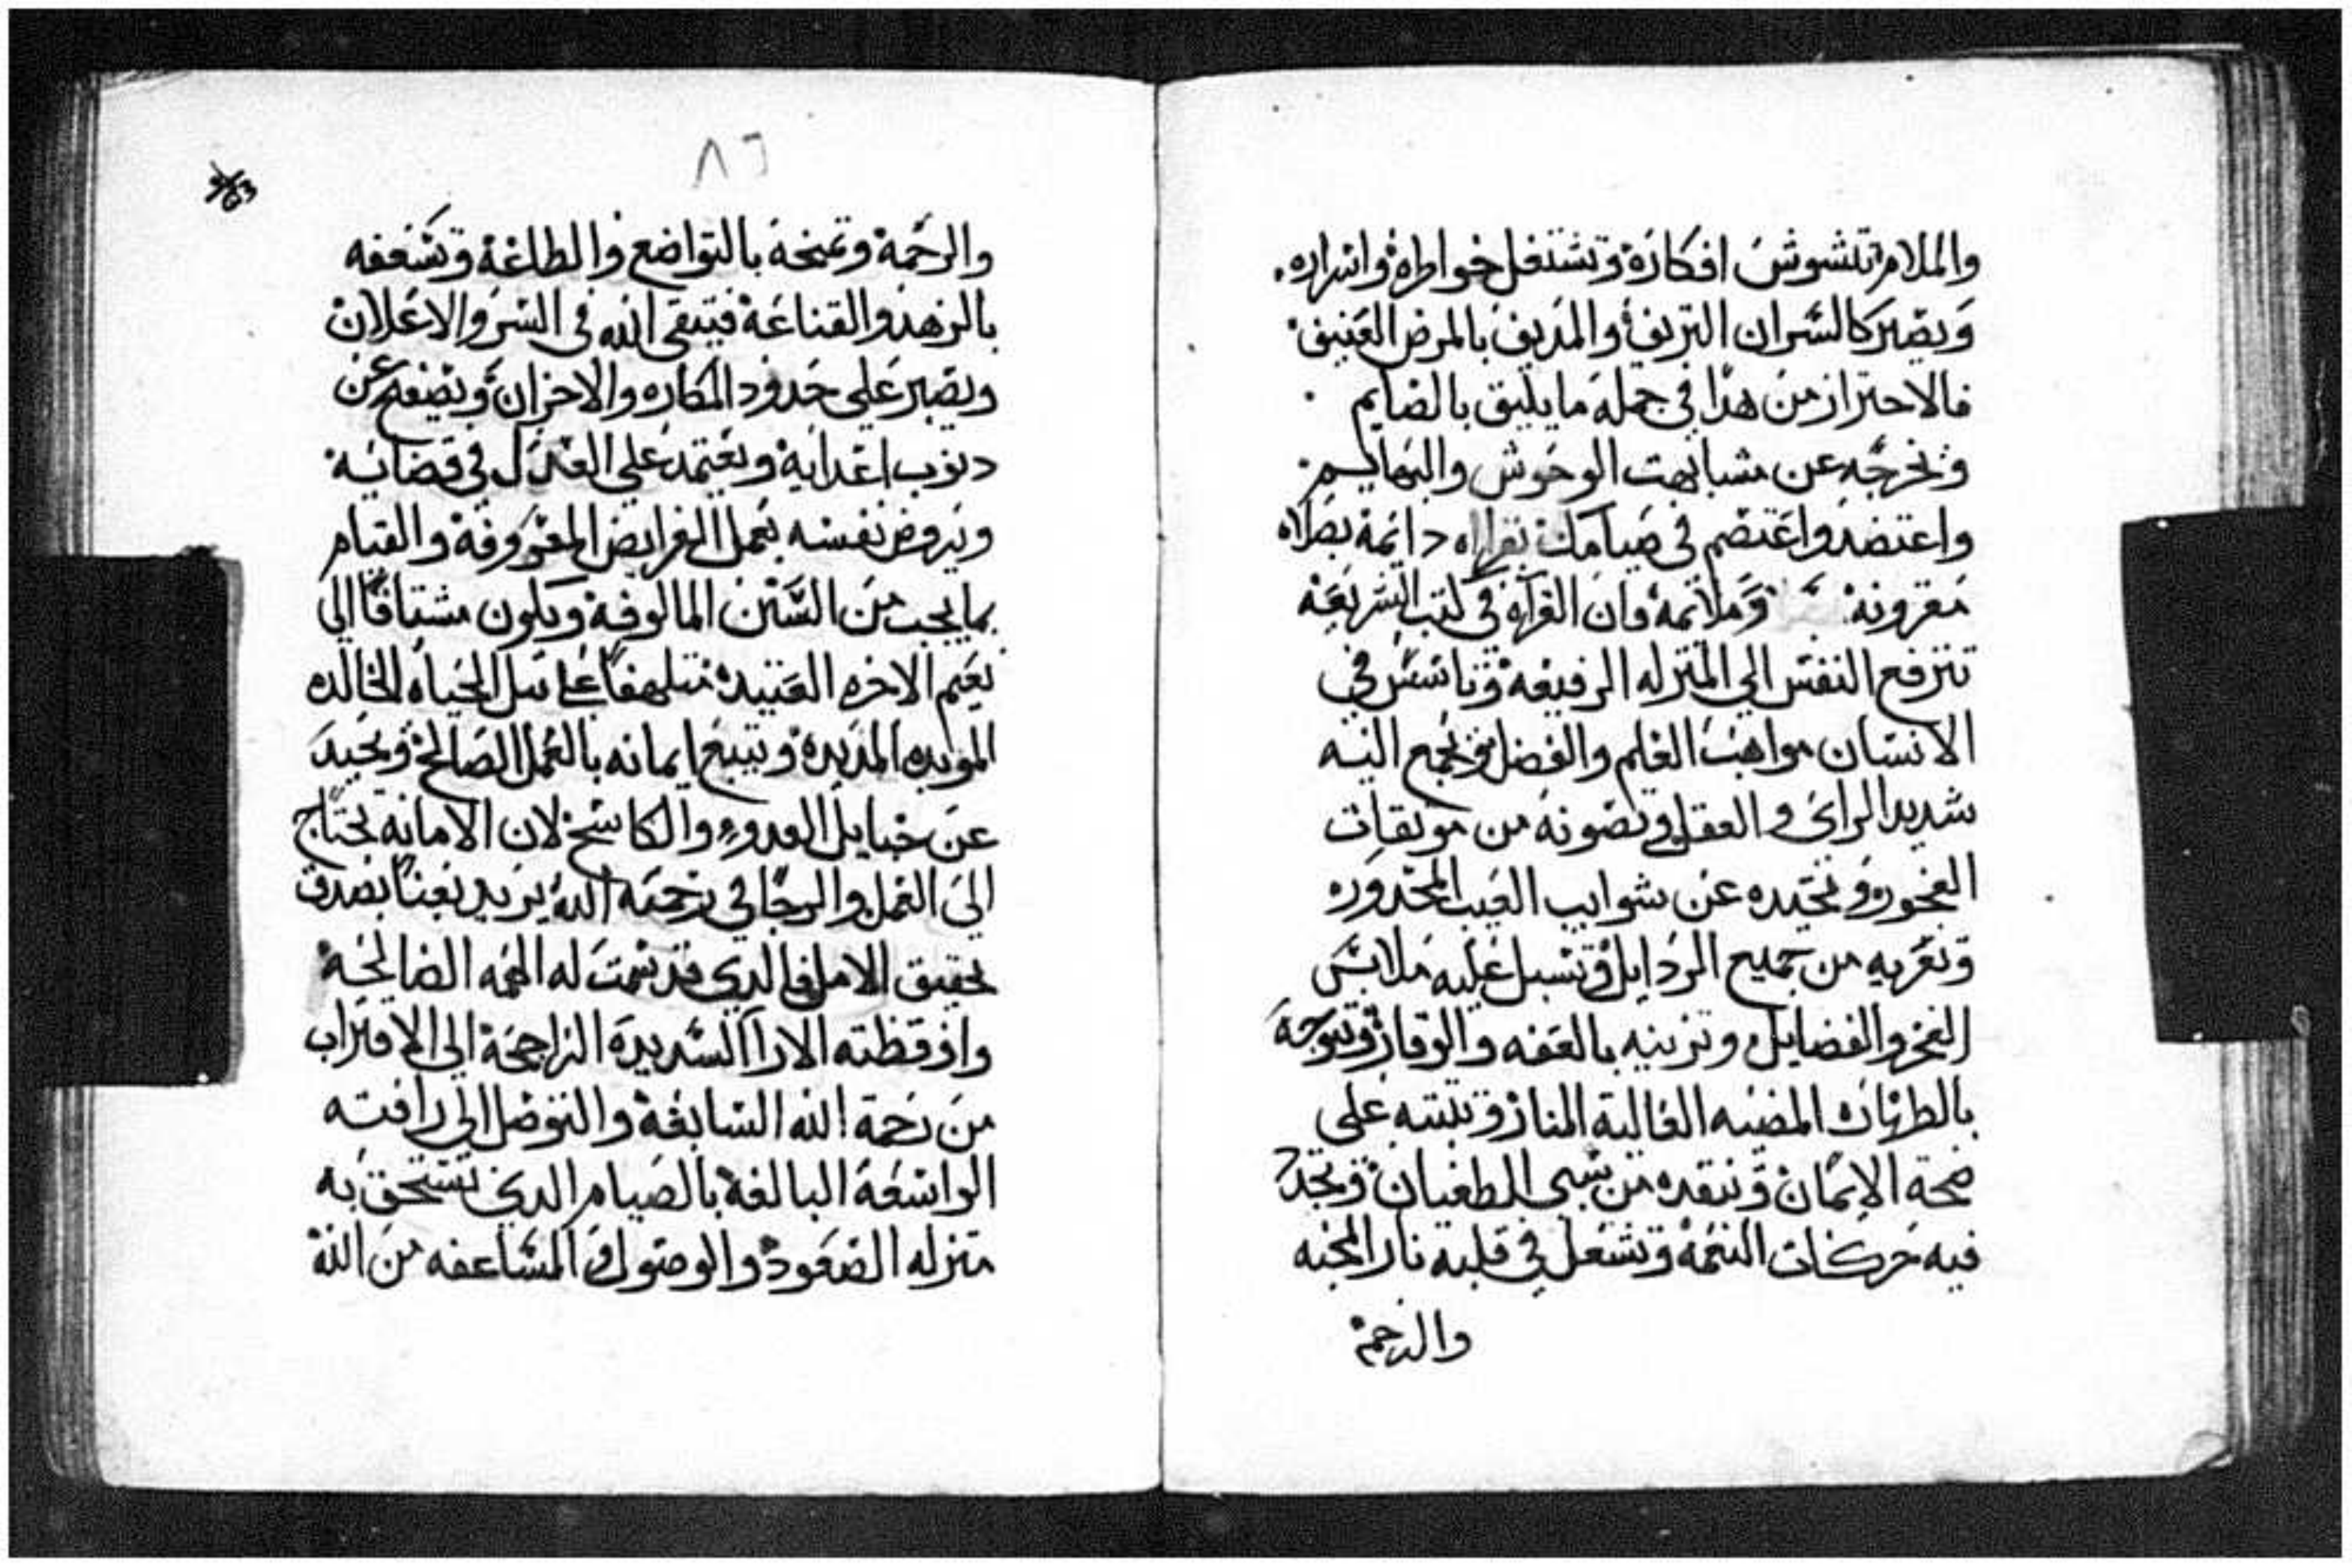 والملام تتشوش افكاره وتشتغل خواطره واسراره.
ويصير كالسكران النزيف والمديف بالمرض العنيف
فالاحتراز من هذا في جمله ما يليق بالصايم
وتخرجه عن مشابهت الوحوش والبهايم
واعتضد واعتصم في صيامك بقراه دائمة بصلاه
مقرونة وملائمه فان القرآه في كتب الشريعه
تترفع النفس الي المنزله الرفيعه وتتاسس في
الانسان مواهب العلم والفضل وتجمع اليه
شديد الراي والعقل وتصونه من موبقات
الفجور وتحيده عن شوايب العيب المحدوره
وتعريه من جميع الردايل وتسبل عليه ملابس
الفخر والفضايل وتزينه بالعفه والوقار وتتوجه
بالطهارة المضيه الغالبة المنار وتثبته على
صحة الايمان وتنقده من سبي الطغيان وتجدد
فيه حركات النعمة وتشعل في قلبه نار المحبه
والرحمة
٨٢
والرحمة وتمنحه بالتواضع والطاعة وتسعفه
بالزهد والقناعة فيتقي الله في السر والاعلان
ويصبر على حدود المكاره والاحزان ويصفح عن
دنوب اعدايه ويعتمد علي العدل في قضايه
ويروض نفسه بعمل الفرايض المعروفة والقيام
بما يجب من السنن المالوفة ويكون مشتاقا الي
نعيم الاخره العتيدة متلهفا علي نيل الحياه الخالده
الموبده المديدة ويتبع ايمانه بالعمل الصالح ويحيد
عن حبايل العدو والكاشح لان الامانه تحتاج
الي العمل والرجا في رحمة الله يريد تعبا بصدق
تحقيق الامل فالدي قد سمت له الهمه الصالحة
وايقظته الارآ السديدة الراجحة الي الاقتراب
من رحمة الله السابغة والتوصل الي رافته
الواسعة البالغة بالصيام الدي تستحق به
منزله الصعود والوصول والمساعفه من الله